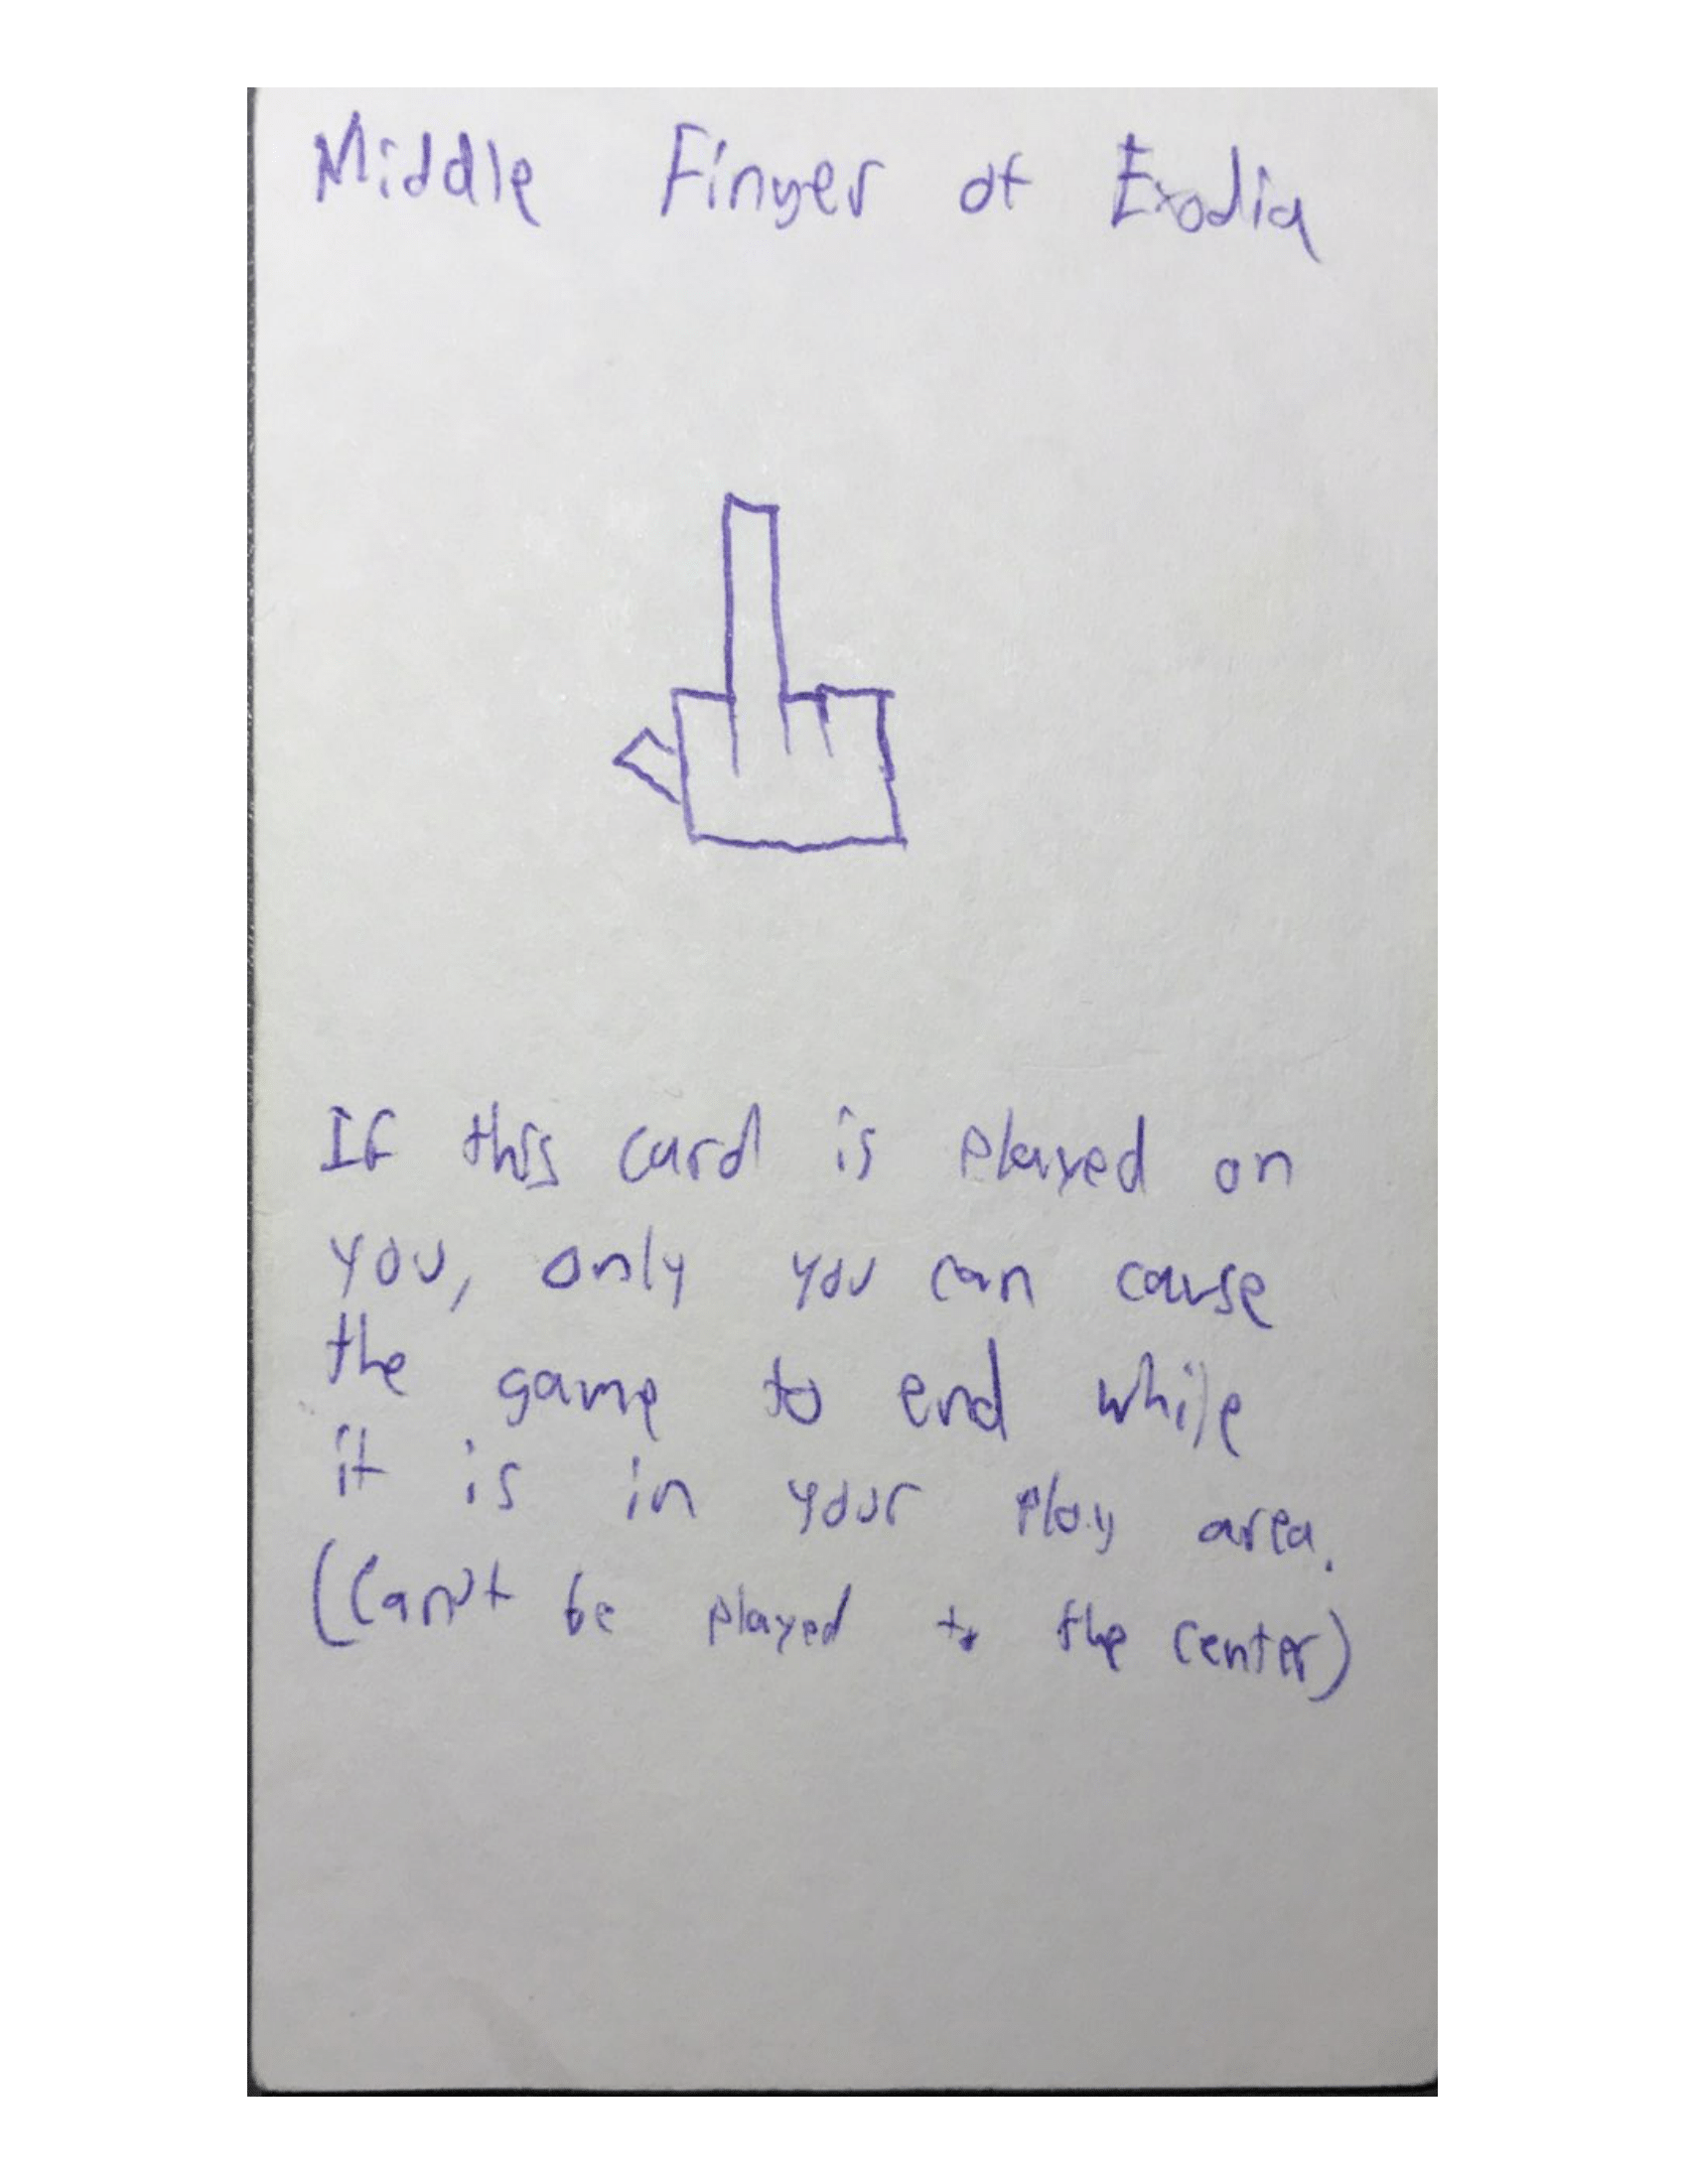 Middle Finger of Exodia
If this card is played on
you, only you can cause
the game to end while
it is in your play area.
(Can't be played to the center)